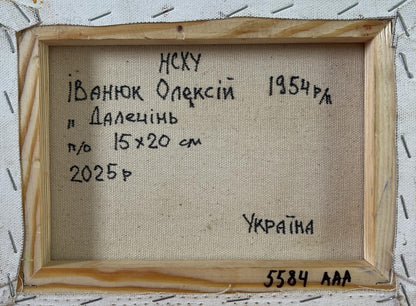 НСКУ
Іванюк Олексій 1954 р/н
„ Далечінь
п/о 15x20 см
2025р
Україна
5584 ААА